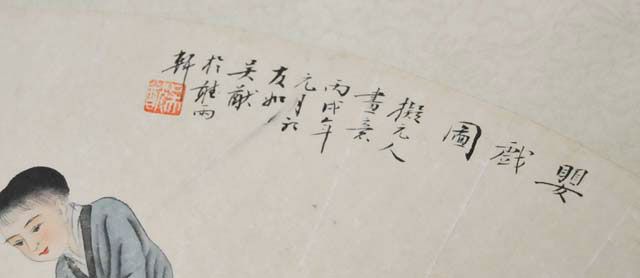 嬰戲圖
擬元人
畫意
丙戌年
元月
友如
吴猷
於聽雨
軒